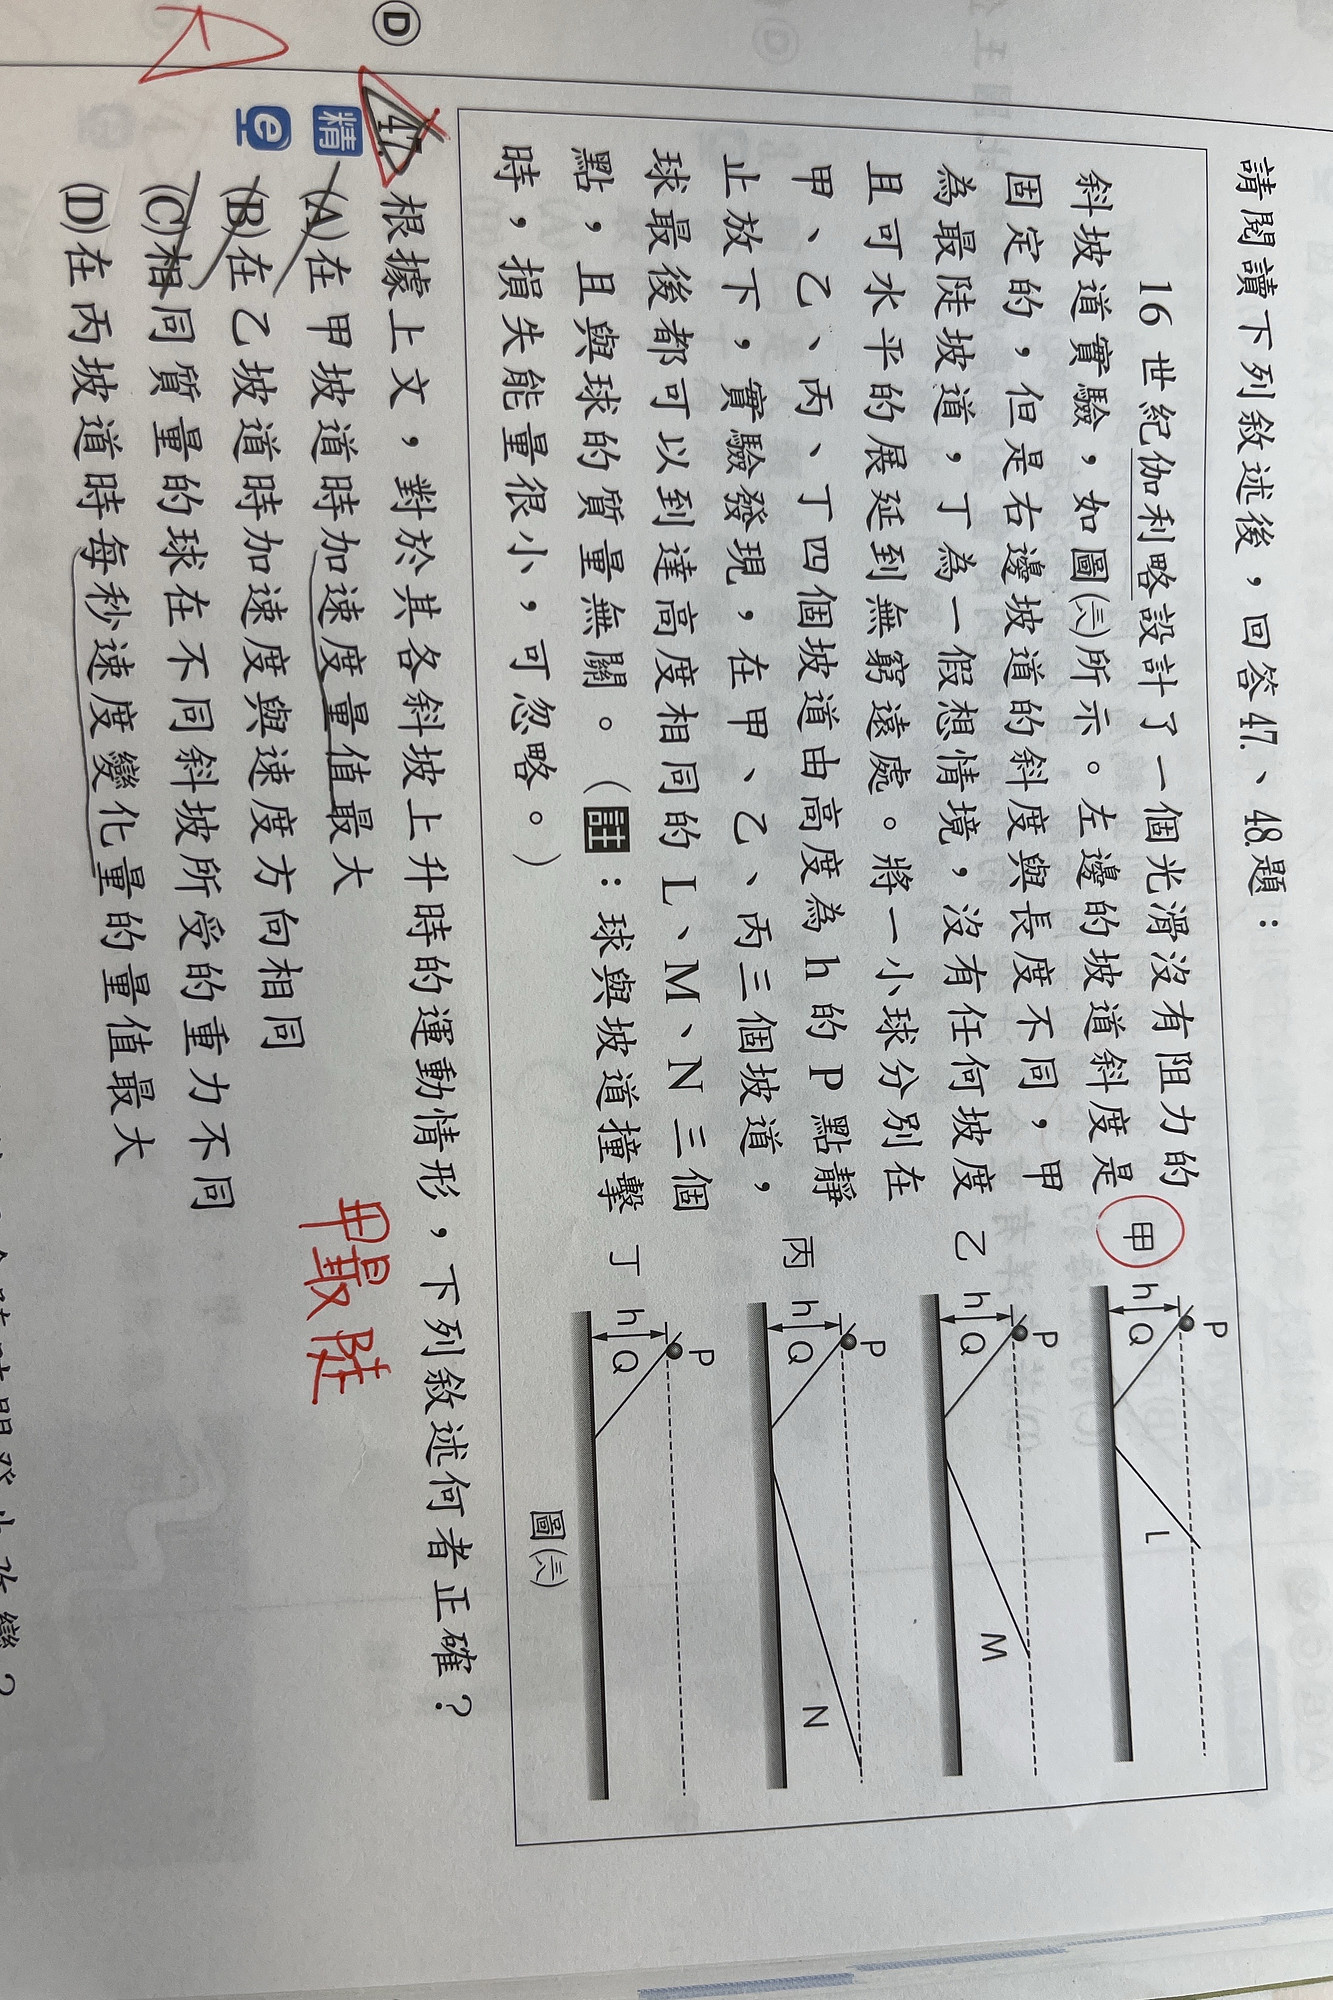 請閱讀下列敘述後，回答47.、48.題：
16 世紀伽利略設計了一個光滑沒有阻力的
斜坡道實驗，如圖(三)所示。左邊的坡道斜度是
固定的，但是右邊坡道的斜度與長度不同，甲
為最陡坡道，丁為一假想情境，沒有任何坡度
且可水平的展延到無窮遠處。將一小球分別在
甲、乙、丙、丁四個坡道由高度為 h 的 P 點靜
止放下，實驗發現，在甲、乙、丙三個坡道，
球最後都可以到達高度相同的 L、M、N 三個
點，且與球的質量無關。（註：球與坡道撞擊
時，損失能量很小，可忽略。）
甲 h Q P L
乙 h Q P M
丙 h Q P N
丁 h Q P
圖(三)
D
47. 根據上文，對於其各斜坡上升時的運動情形，下列敘述何者正確？
精 (A)在甲坡道時加速度量值最大
e (B)在乙坡道時加速度與速度方向相同
(C)相同質量的球在不同斜坡所受的重力不同
(D)在丙坡道時每秒速度變化量的量值最大
甲最陡